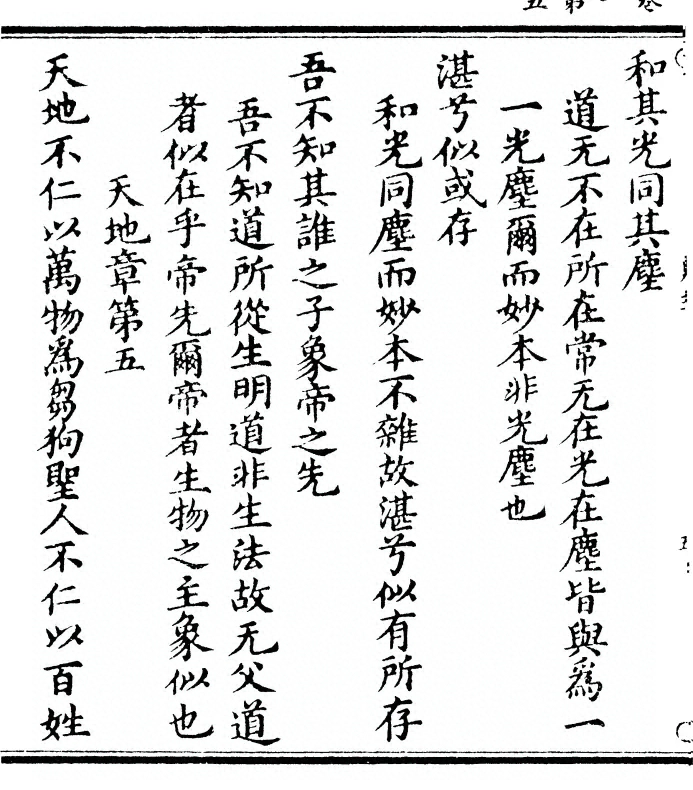 和其光同其塵
道无不在所在常无在光在塵皆與爲一
一光塵爾而妙本非光塵也
湛兮似或存
和光同塵而妙本不雜故湛兮似有所存
吾不知其誰之子象帝之先
吾不知道所從生明道非生法故无父道
者似在乎帝先爾帝者生物之主象似也
天地章第五
天地不仁以萬物爲芻狗聖人不仁以百姓